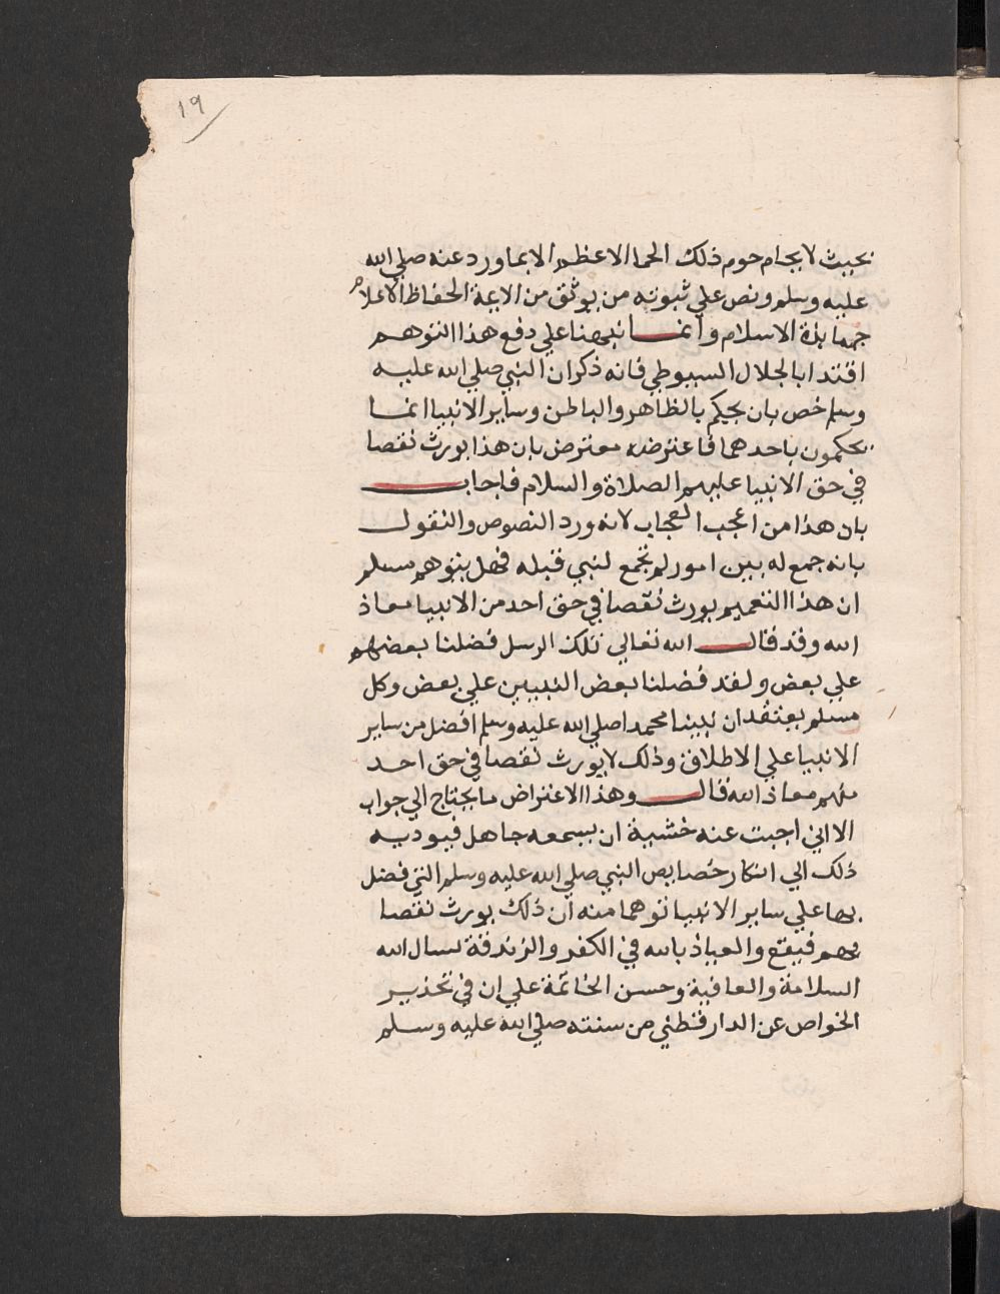 ١٩
بحيث لا يحام حوم ذلك الحما الاعظم الا بما ورد عنه صلي الله
عليه وسلم ونص علي ثبوته من يوثق من الايمة الحفاظ الاعلام
جهابذة الاسلام وانما نبهنا علي دفع هذا التوهم
اقتدا بالجلال السيوطي فانه ذكر ان النبي صلي الله عليه
وسلم خص بان يحكم بالظاهر والباطن وساير الانبيا انما
يحكمون باحدهما فاعترضه معترض بان هذا يورث نقصا
في حق الانبيا عليهم الصلاة والسلام فاجاب
بان هذا من اعجب العجاب لانه ورد النصوص والنقول
بانه جمع له بين امور لم تجمع لنبي قبله فهل يتوهم مسلم
ان هذا التعميم يورث نقصا في حق احد من الانبيا معاذ
الله وقد قال الله تعالي تلك الرسل فضلنا بعضهم
علي بعض ولقد فضلنا بعض النبيين علي بعض وكل
مسلم يعتقد ان نبينا محمدا صلي الله عليه وسلم افضل من ساير
الانبيا علي الاطلاق وذلك لا يورث نقصا في حق احد
منهم معاذ الله قال وهذا الاعتراض ما يحتاج الي جواب
الا اني اجبت عنه خشية ان يسمعه جاهل فيوديه
ذلك الي انكار خصايص النبي صلي الله عليه وسلم التي فضل
بها علي ساير الانبيا توهما منه ان ذلك يورث نقصا
بهم فيقع والعياذ بالله في الكفر والزندقة نسال الله
السلامة والعافية وحسن الخاتمة علي ان في تحذير
الخواص عن الدارقطني من سنته صلي الله عليه وسلم